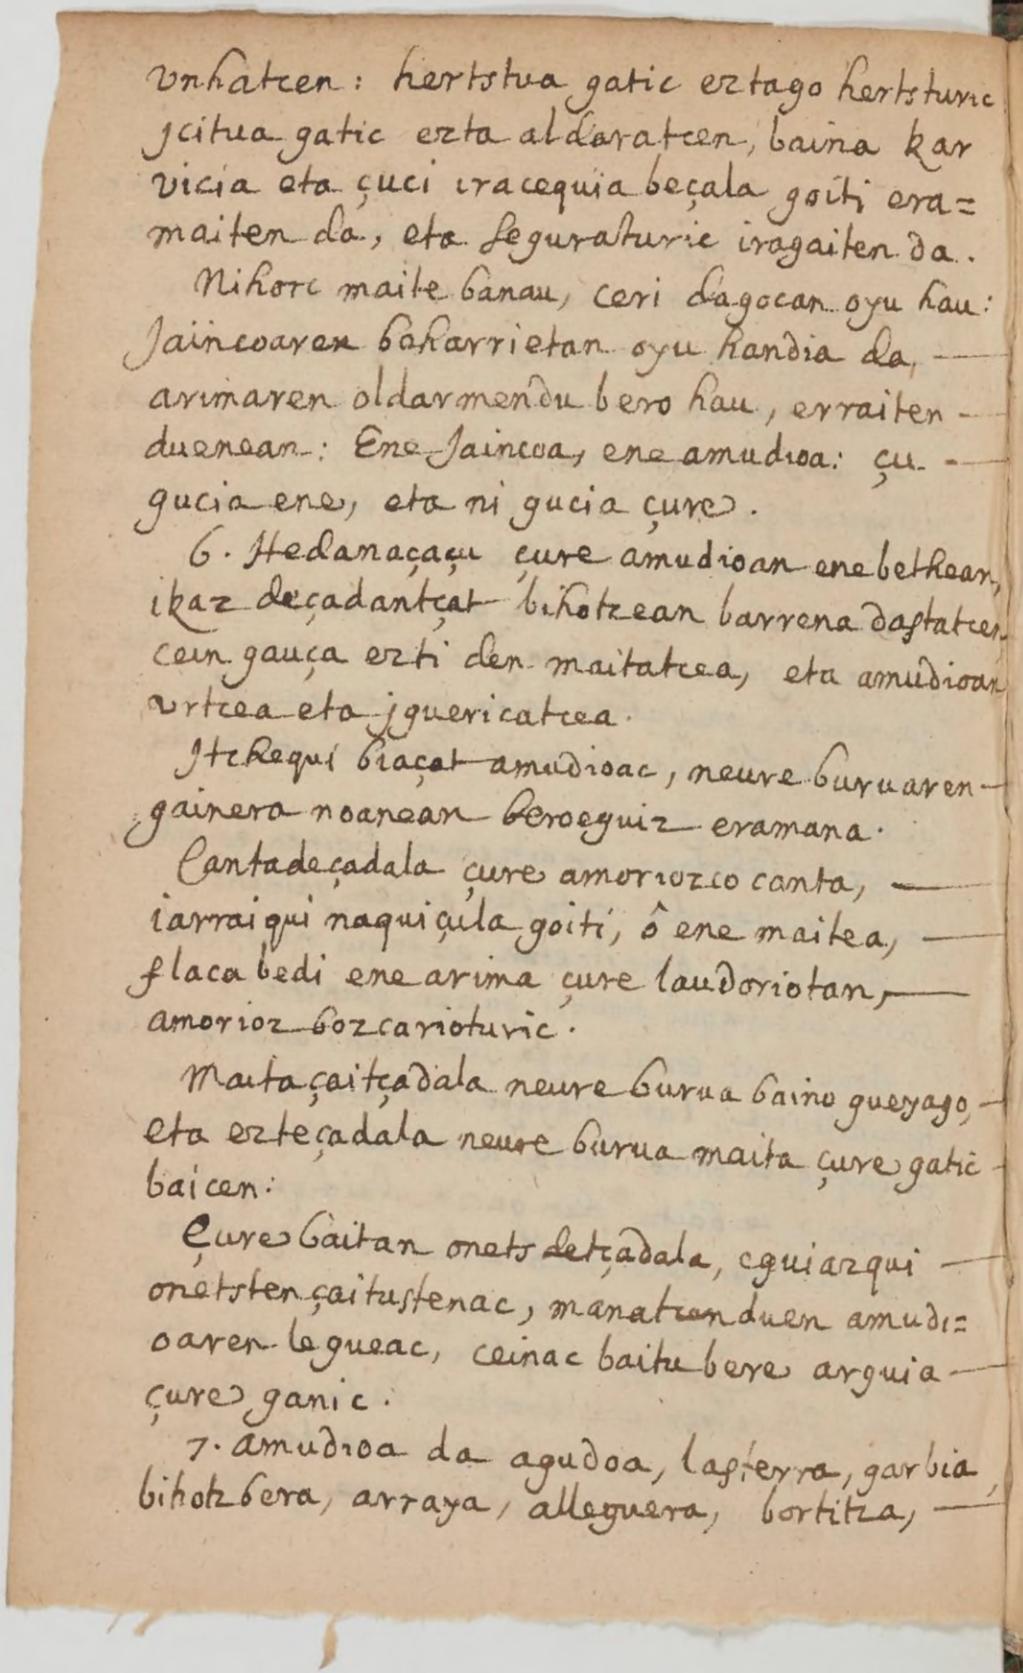 vnhatcen: hertstua gatic eztago hertsturic
jcitua gatic ezta aldaratcen, baina kar
vicia eta çuci iracequia beçala goiti era=
maiten da, eta seguraturic iragaiten da.
Nihorc maite banau, ceri dagocan oyu hau:
Jaincoaren beharrietan oyu handia da,
arimaren oldarmendu bero hau, erraiten
duenean: Ene Jaincoa, ene amudioa: çu
gucia ene, eta ni gucia çure.
6. Hedanaçaçu çure amudioan ene bethean,
ikaz deçadantçat bihotzean barrena dastatcen
cein gauça ezti den maitatcea, eta amudioan
vrtcea eta jguericatcea.
Itchequi biaçat amudioac, neure buruaren
gainera noanean beroeguiz eramana.
Cantadeçadala çure amoriozco canta,
iarraiqui naquiçula goiti, ô ene maitea,
flaca bedi ene arima çure laudoriotan,
amorioz bozcarioturic.
Maita çaitçadala neure burua baino gueyago,
eta ezteçadala neure burua maita çure gatic
baicen:
Çure baitan onets detçadala, eguiazqui
onetsten çaitustenac, manatcen duen amudi=
oaren legueac, ceinac baitu bere arguia
çure ganic.
7. amudioa da agudoa, lasterra, garbia,
bihotzbera, arraya, alleguera, bortitza,